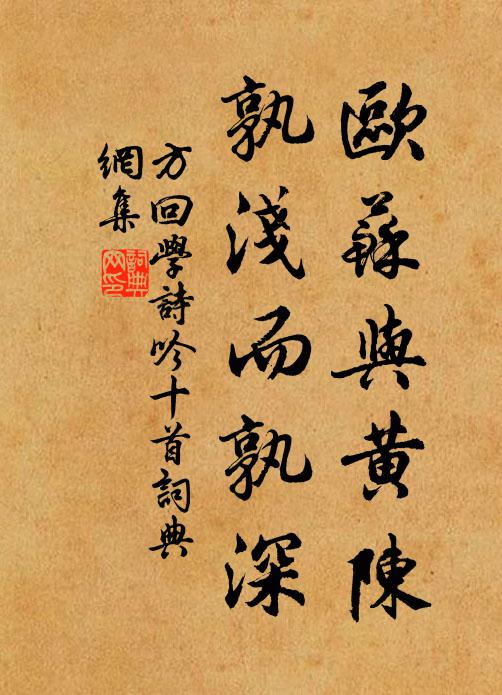 歐蘇與黃陳
孰淺而孰深
方回學詩吟十首詞典
網集
詞典网印